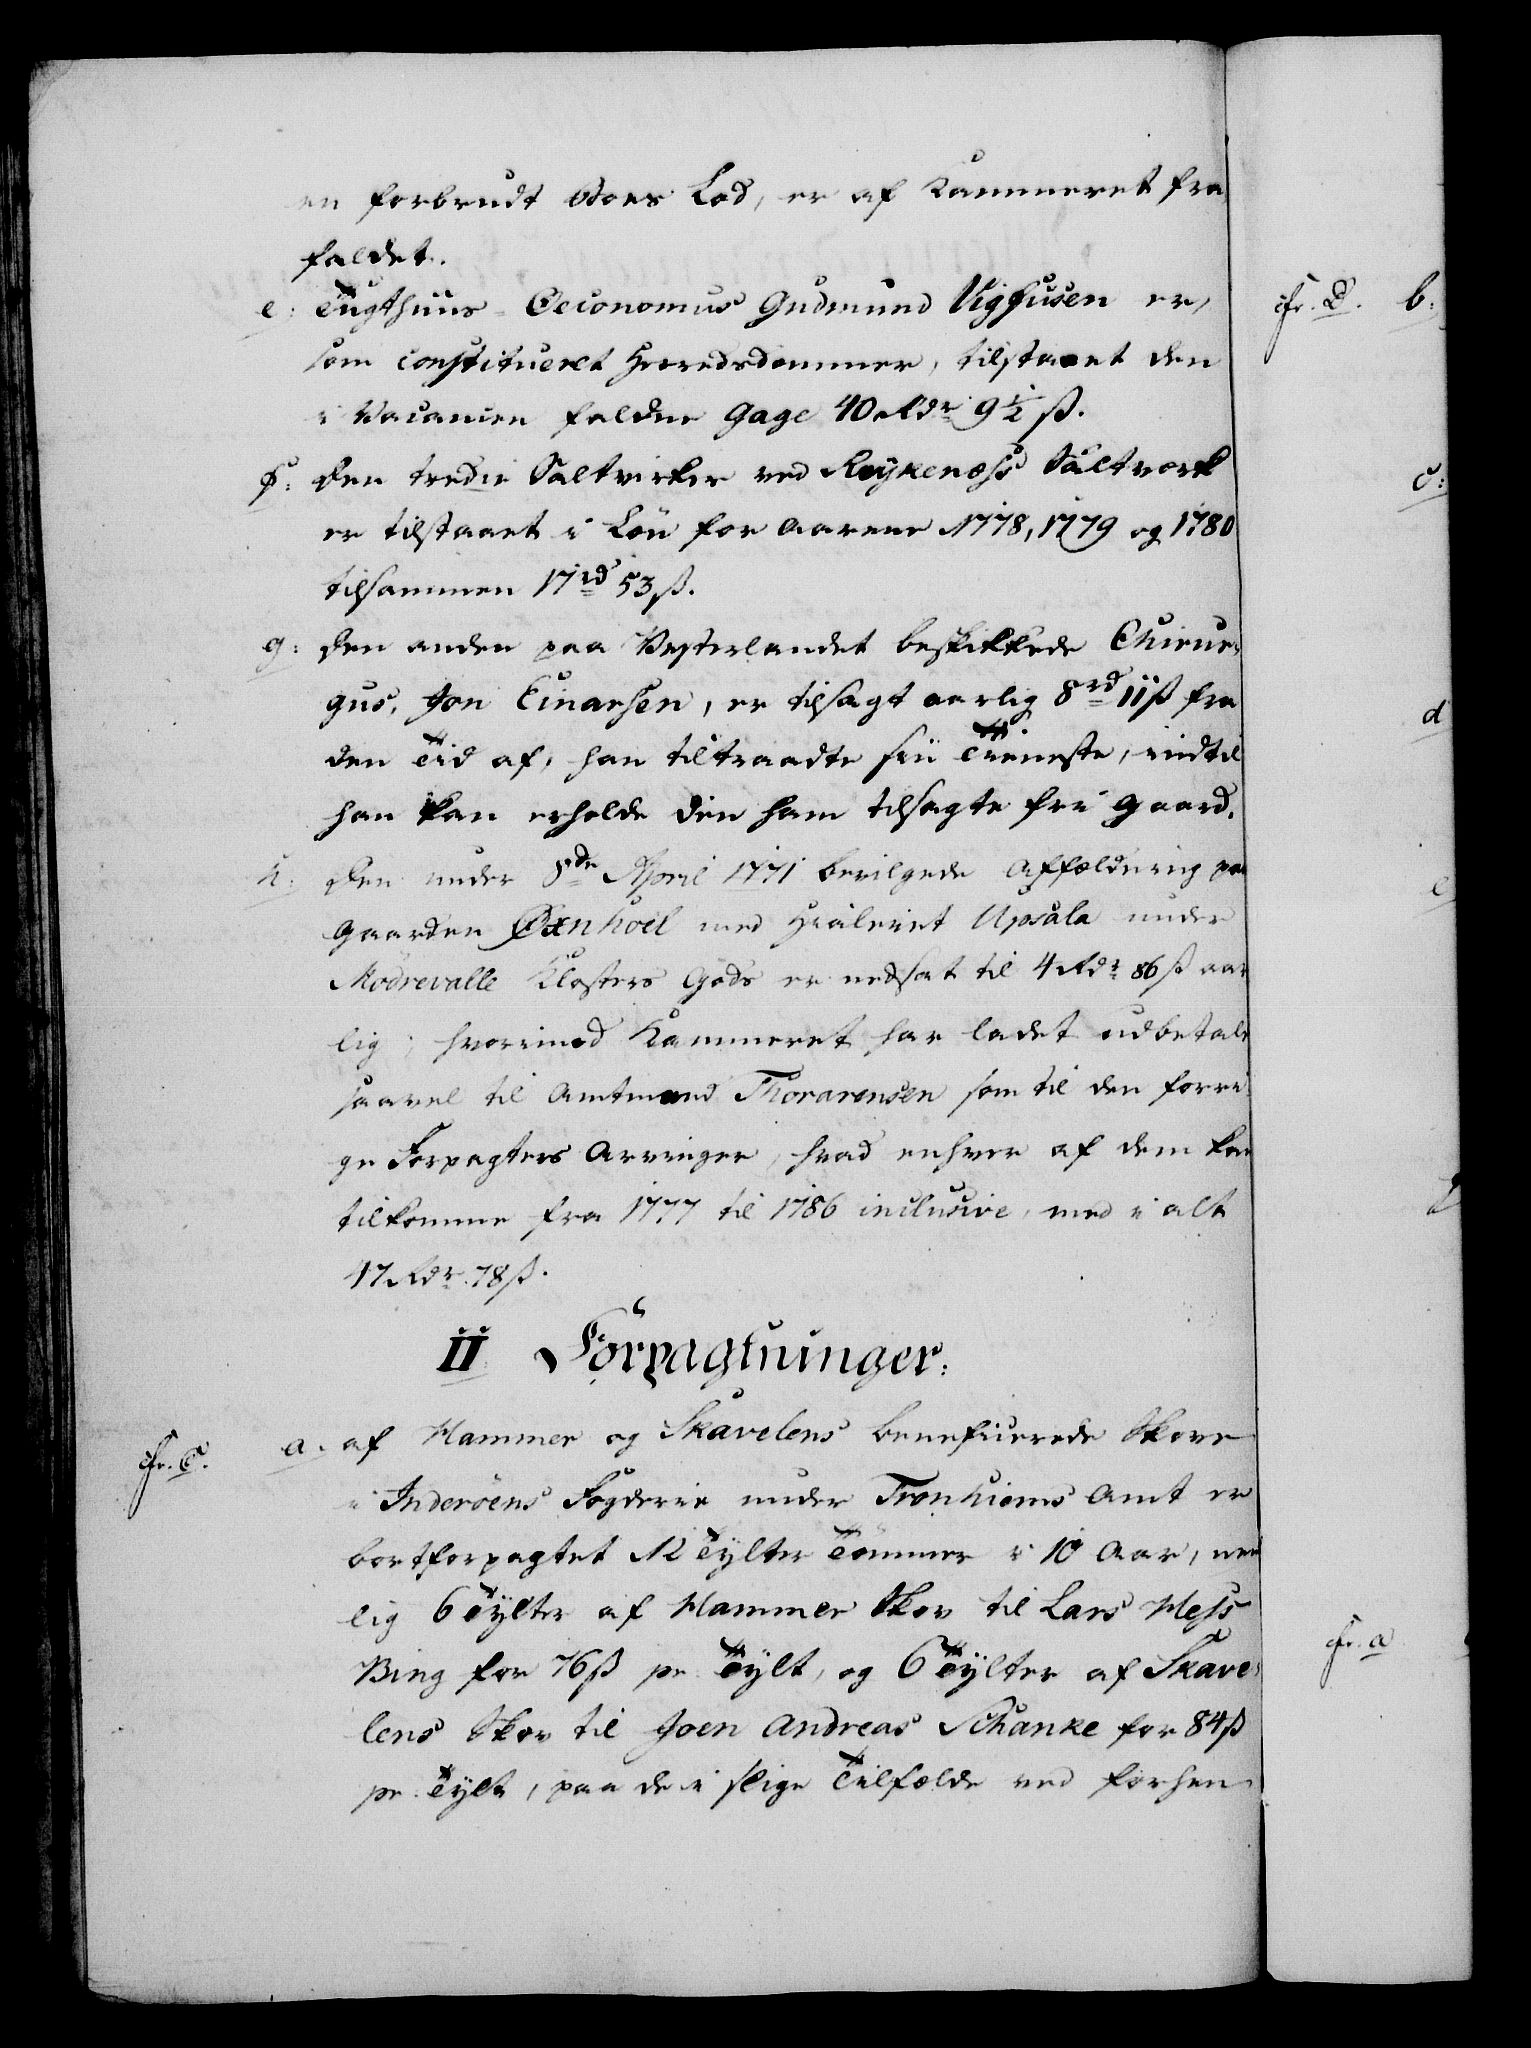 en forbrudt Boes Lod, er af Kammeret fra
faldet.
e: Tugthuus-Oeconomus Gudmund Vigfusen er,
som constitueret Herredsdommer, tilstaaet den
i Vacancen faldne Gage 40 Rdr 9½ ß.
f: Den tredie Saltvirker ved Reykenæss Saltværk
er tilstaaet i Løn for Aarene 1778, 1779 og 1780
tilsammen 17rd 53 ß.
g: Den anden paa Vesterlandet beskikkede Chirur-
gus, Jon Einarsen, er tilsagt aarlig 8rd 11 ß fra
den Tid af, han tiltraadte sin Tieneste, indtil
han kan erholde den ham tilsagte frie Gaard.
h: Den under 8de April 1771 bevilgede Affældning paa
Gaarden Øxnhoel med Hialeiet Upsala under
Mödrevalle Klosters Gods er nedsat til 4 Rdr 86 ß aar
lig; hvorimod Kammeret har ladet udbetale
saavel til Amtmand Thorarensen som til den forri-
ge Forpagters Arvinger, hvad enhver af dem kan
tilkomme fra 1777 til 1786 inclusive, med i alt
47 Rdr 78 ß.
II Forpagtninger:
cfr. C. a. af Hammer og Skavelens beneficerede Skove
i Inderöens Fogderie under Tronhiems Amt er
bortforpagtet 12 Tylter Tømmer i 10 Aar, nem
lig 6 Tylter af Hammer Skov til Lars Hess
Bing for 76 ß pr. Tylt, og 6 Tylter af Skave-
lens Skov til Joen Andreas Schanke for 84 ß
pr. Tylt, paa de i slige Tilfælde ved forhen-
cfr. D. b:
c:
d
e
cfr. a